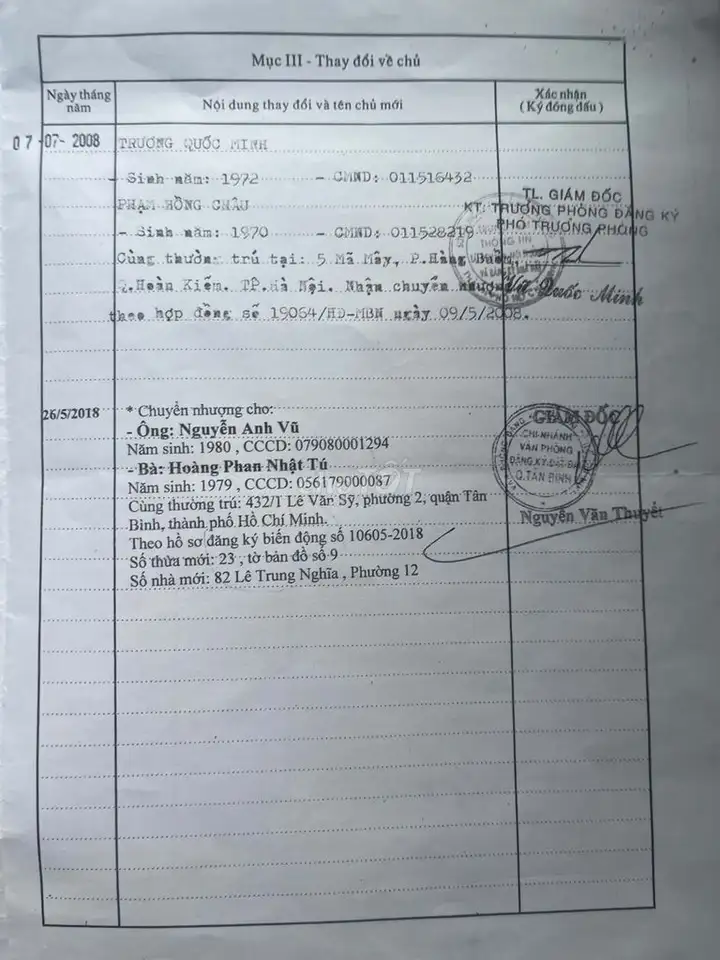 Mục III - Thay đổi về chủ
Ngày tháng năm
Nội dung thay đổi và tên chủ mới
Xác nhận
(Ký đóng dấu)
07-07-2008
TRƯƠNG QUỐC MINH
- Sinh năm: 1972 - CMND: 011516432
PHẠM HỒNG CHÂU
- Sinh năm: 1970 - CMND: 011528219
Cùng thường trú tại: 5 Mã Mây, P.Hàng Buồm,
Q.Hoàn Kiếm. TP.Hà Nội. Nhận chuyển nhượng
theo hợp đồng số 19064/HĐ-MBN ngày 09/5/2008.
TL. GIÁM ĐỐC
KT. TRƯỞNG PHÒNG ĐĂNG KÝ
PHÓ TRƯỞNG PHÒNG
THÔNG TIN
Quốc Minh
26/5/2018
* Chuyển nhượng cho:
- Ông: Nguyễn Anh Vũ
Năm sinh: 1980 , CCCD: 079080001294
- Bà: Hoàng Phan Nhật Tú
Năm sinh: 1979 , CCCD: 056179000087
Cùng thường trú: 432/1 Lê Văn Sỹ, phường 2, quận Tân
Bình, thành phố Hồ Chí Minh.
Theo hồ sơ đăng ký biến động số 10605-2018
Số thửa mới: 23 , tờ bản đồ số 9
Số nhà mới: 82 Lê Trung Nghĩa , Phường 12
GIÁM ĐỐC
CHI NHÁNH
VĂN PHÒNG
ĐĂNG KÝ ĐẤT ĐAI
Q.TÂN BÌNH
Nguyễn Văn Thuyết